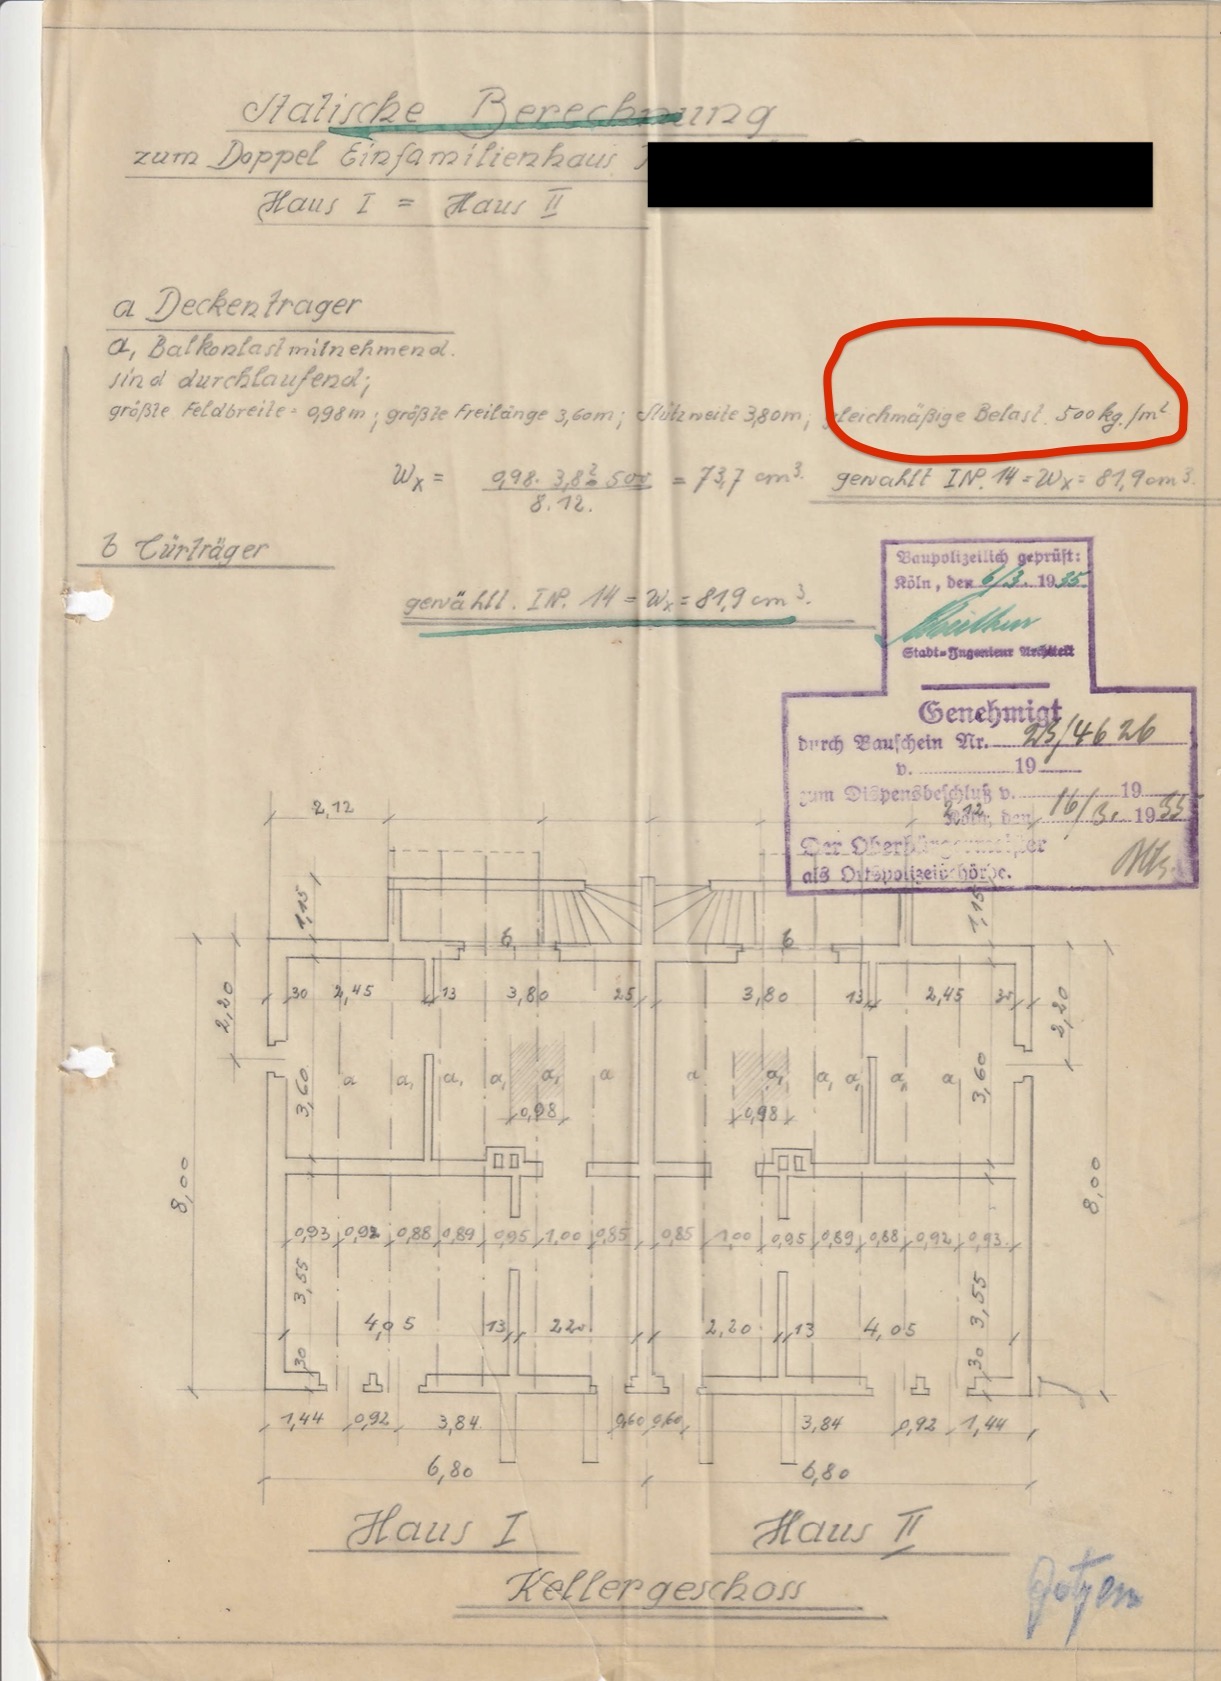 Statische Berechnung
zum Doppel Einfamilienhaus
Haus I = Haus II
a Deckenträger
a, Balkonlast mitnehmend.
sind durchlaufend;
größte Feldbreite = 0,98 m; größte Freilänge 3,60 m; Stützweite 3,80 m; gleichmäßige Belast. 500 kg./m²
Wx = 0,98. 3,8² 500 / 8.12. = 73,7 cm³. gewählt INP. 14 = Wx = 81,9 cm³.
b Türträger
gewählt. INP. 14 = Wx = 81,9 cm³.
Baupolizeilich geprüft:
Köln, den 6/3. 1935
Stadt=Ingenieur Architekt
Genehmigt
durch Bauschein Nr. 23/4626
v. 19
zum Dispensbeschluß v. 19
Köln, den 16/3. 1935
Der Oberbürgermeister
als Ortspolizeibehörde.
2,12 2,12
1,15 1,15
b b
30 2,45 13 3,80 25 3,80 13 2,45 30
2,20 2,20
a a, a, a, a, a a a, a, a, a, a
3,60 3,60
0,98 0,98
8,00 8,00
0,93 0,92 0,88 0,89 0,95 1,00 0,85 0,85 1,00 0,95 0,89 0,88 0,92 0,93
3,55 3,55
4,05 13 2,20 2,20 13 4,05
30 30
1,44 0,92 3,84 0,60 0,60 3,84 0,92 1,44
6,80 6,80
Haus I Haus II
Kellergeschoss